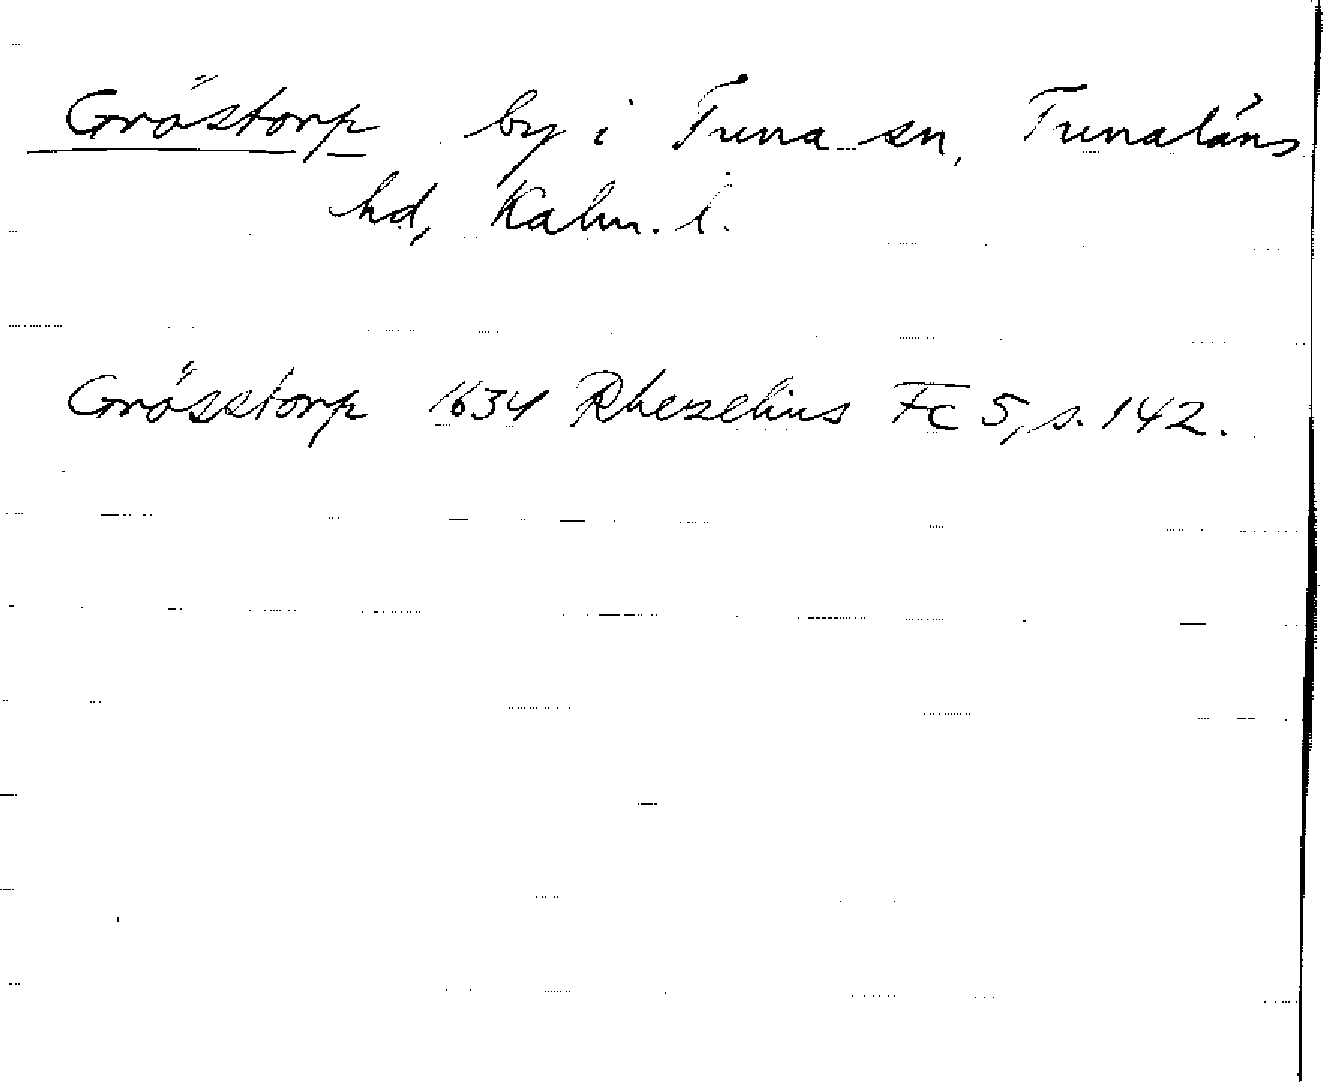 Gröstorp by i Tuna sn, Tunaläns
hd, Kalm. l.
Grösstorp 1634 Rhezelius Fc 5, s. 142.